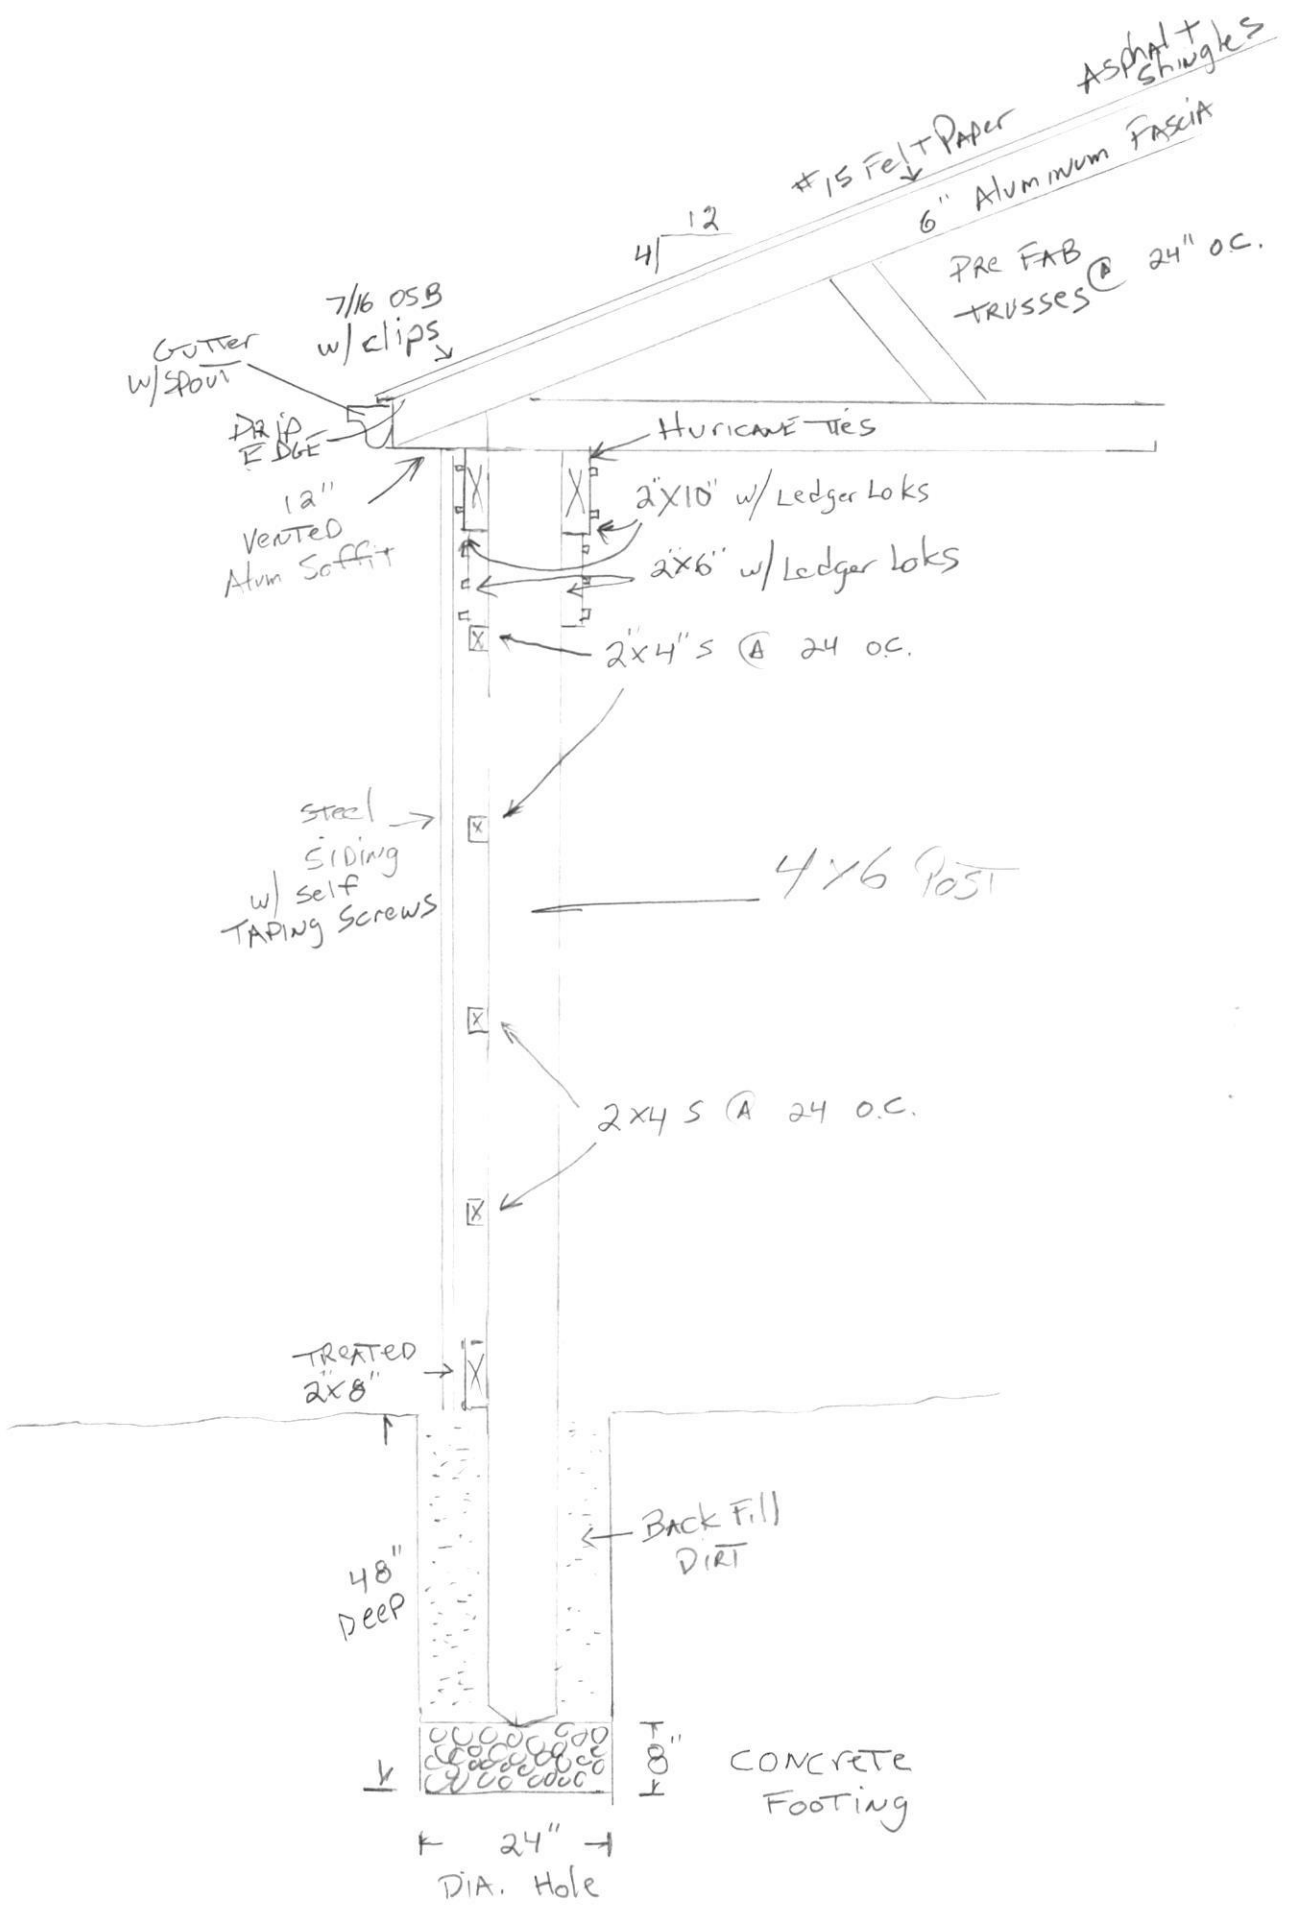 Asphalt
shingles
#15 Felt Paper
6" Aluminum Fascia
12
4
Pre Fab
trusses @ 24" O.C.
7/16 OSB
w/ clips
Gutter
w/ spout
Drip
Edge
Huricane Ties
12"
Vented
Alum Soffit
2"x10" w/ Ledger Loks
2"x6" w/ Ledger Loks
2"x4"s @ 24 O.C.
Steel
Siding
w/ self
Taping Screws
4x6 Post
2x4s @ 24 O.C.
Treated
2"x8"
Back Fill
Dirt
48"
Deep
8"
Concrete
Footing
24"
Dia. Hole